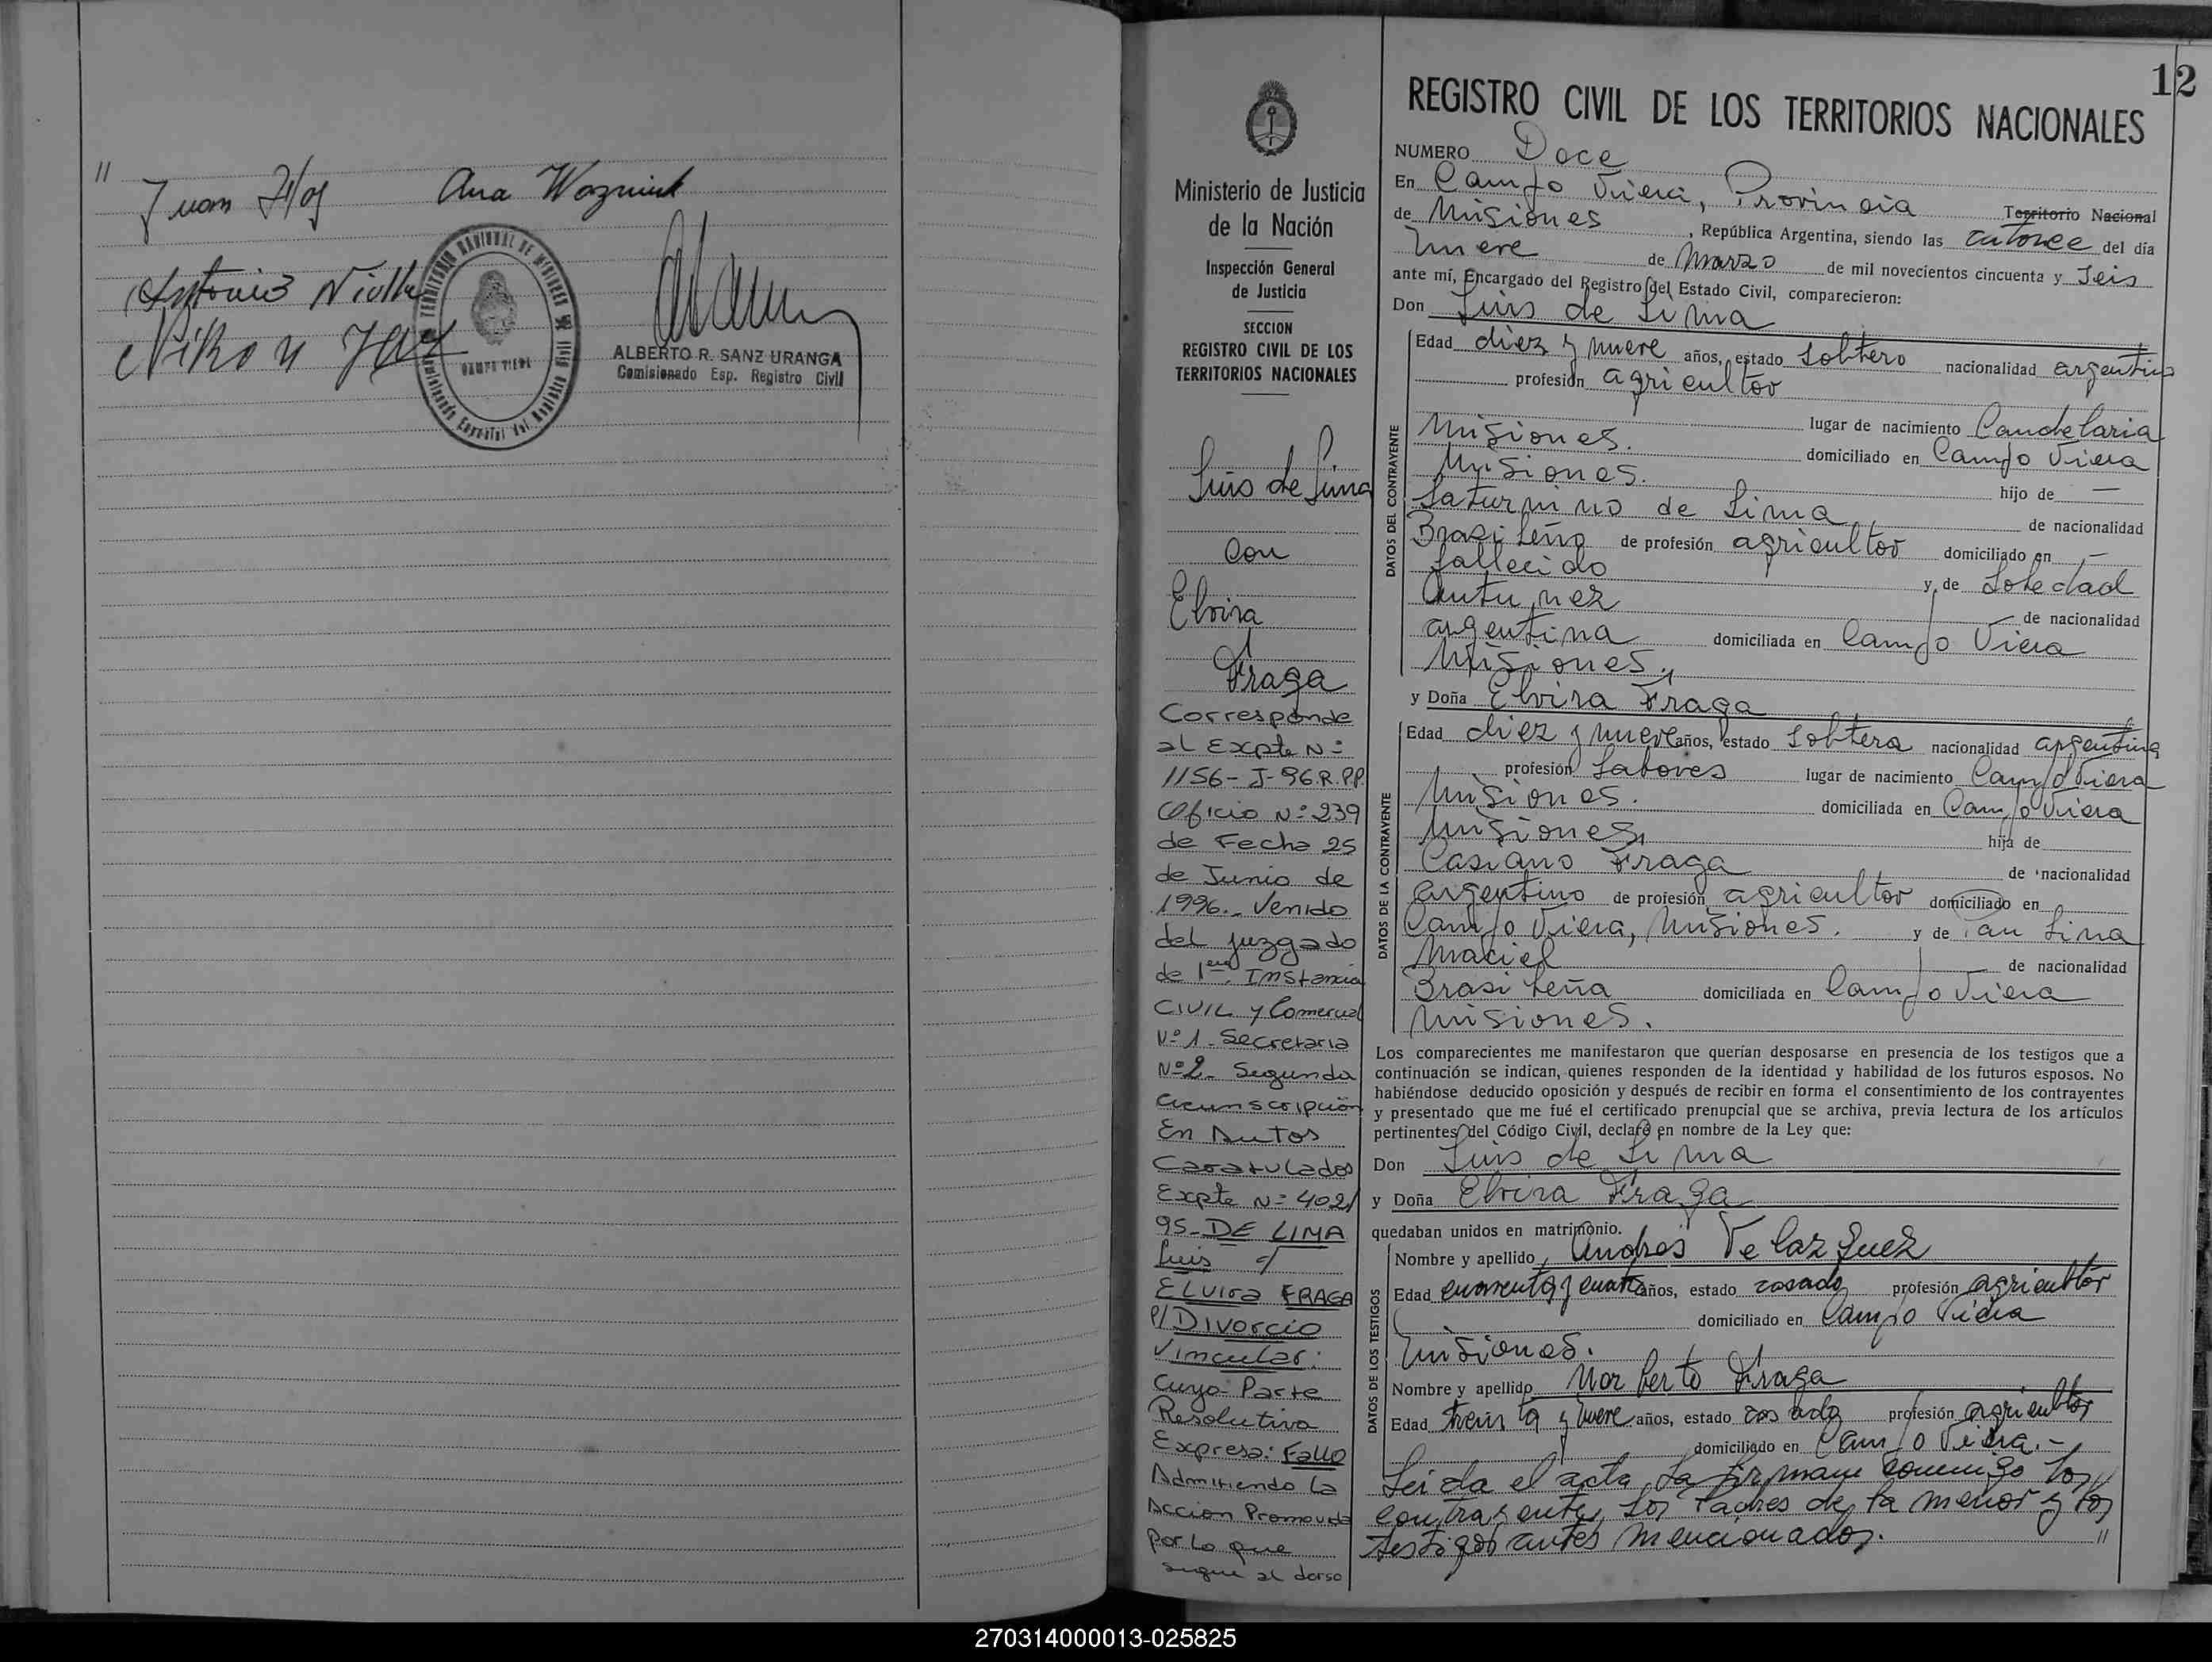 //
Juan Ana Wozniuk
Antonio
ALBERTO R. SANZ URANGA
Comisionado Esp. Registro Civil
CAMPO VIERA
12
Ministerio de Justicia
de la Nación
Inspección General
de Justicia
SECCION
REGISTRO CIVIL DE LOS
TERRITORIOS NACIONALES
Luis de Lima
con
Elvira
Fraga
Corresponde
al Expte Nº
1156-J-96.R.PP.
Oficio Nº 239
de Fecha 25
de Junio de
1996.- Venido
del juzgado
de 1era. Instancia
Civil y Comercial
Nº 1 - Secretaria
Nº 2 - Segunda
Circunscripción
En Autos
Caratulados
Expte Nº 402/
95- DE LIMA
Luis c/
ELVIRA FRAGA
P/ Divorcio
Vincular:
Cuya Parte
Resolutiva
Expresa: Fallo
Admitiendo la
Accion Promovida
por lo que
sigue al dorso
REGISTRO CIVIL DE LOS TERRITORIOS NACIONALES
NUMERO Doce
En Campo Viera, Provincia Territorio Nacional
de Misiones , República Argentina, siendo las catorce del día
nueve de Marzo de mil novecientos cincuenta y Seis
ante mí, Encargado del Registro del Estado Civil, comparecieron:
Don Luis de Lima
DATOS DEL CONTRAYENTE
Edad diez y nueve años, estado Soltero nacionalidad argentino
profesión agricultor
lugar de nacimiento Candelaria
Misiones. domiciliado en Campo Viera
Misiones. hijo de —
Saturnino de Lima de nacionalidad
Brasileño de profesión agricultor domiciliado en —
fallecido y de Soledad
Antunez de nacionalidad
argentina domiciliada en Campo Viera
Misiones.
y Doña Elvira Fraga
DATOS DE LA CONTRAYENTE
Edad diez y nueve años, estado Soltera nacionalidad argentina
profesión Labores lugar de nacimiento Campo Viera
Misiones. domiciliada en Campo Viera
Misiones, hija de
Casiano Fraga de nacionalidad
argentino de profesión agricultor domiciliado en
Campo Viera, Misiones. y de Lina
Maciel de nacionalidad
Brasileña domiciliada en Campo Viera
Misiones.
Los comparecientes me manifestaron que querían desposarse en presencia de los testigos que a
continuación se indican, quienes responden de la identidad y habilidad de los futuros esposos. No
habiéndose deducido oposición y después de recibir en forma el consentimiento de los contrayentes
y presentado que me fué el certificado prenupcial que se archiva, previa lectura de los artículos
pertinentes del Código Civil, declaré en nombre de la Ley que:
Don Luis de Lima
y Doña Elvira Fraga
quedaban unidos en matrimonio.
DATOS DE LOS TESTIGOS
Nombre y apellido Andres Velazquez
Edad cuarenta y cuatro años, estado casado profesión agricultor
domiciliado en Campo Viera
Misiones.
Nombre y apellido Norberto Fraga
Edad treinta y nueve años, estado casado profesión agricultor
domiciliado en Campo Viera.-
Leida el acta la firman conmigo los
contrayentes, los Padres de la menor y los
testigos antes mencionados. //
270314000013-025825